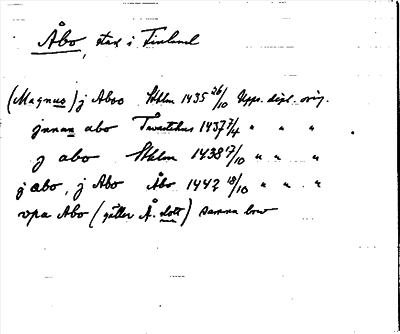 Åbo, stad i Finland
(Magnus) j Aboo Sthlm 1435 26/10 Upps. dipl. orig.
jnnan abo Tavastehus 1437 7/4 " " "
j abo Sthlm 1438 17/10 " " "
j abo, j Abo Åbo 1442 18/10 " " "
vpa Abo (gäller Å. slott) samma brev